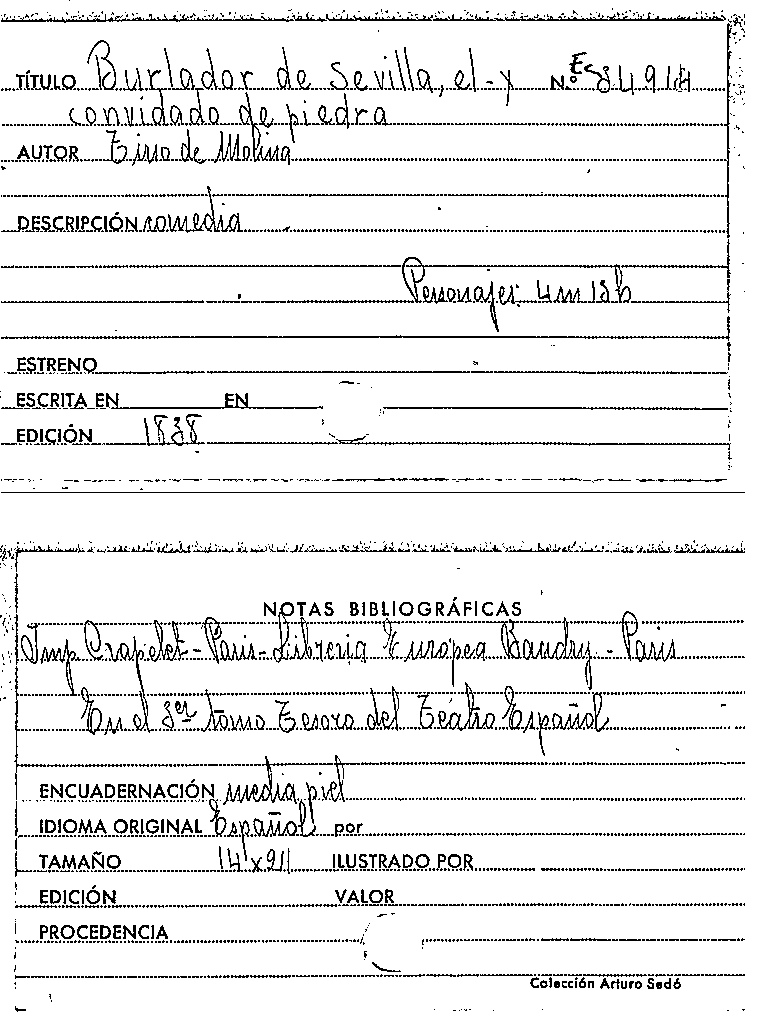 TÍTULO Burlador de Sevilla, el - y N.º Es
convidado de piedra
AUTOR Tirso de Molina
DESCRIPCIÓN comedia
Personajes: 4m 18h
ESTRENO
ESCRITA EN EN
EDICIÓN 1838
NOTAS BIBLIOGRÁFICAS
Imp Crapelet - Paris - Libreria Europea Baudry - Paris
En el 3er tomo Tesoro del Teatro Español
ENCUADERNACIÓN media piel
IDIOMA ORIGINAL Español por
TAMAÑO ILUSTRADO POR
EDICIÓN VALOR
PROCEDENCIA
Colección Arturo Sedó